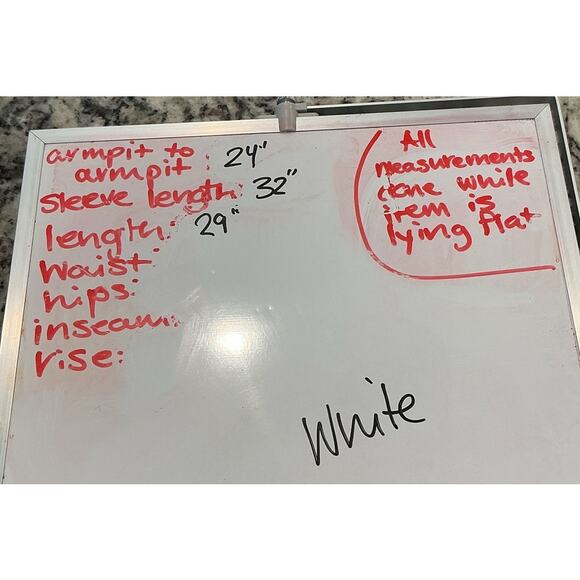 armpit to
armpit : 24"
sleeve length: 32"
length: 29"
waist:
hips:
inseam:
rise:
All
measurements
done while
irem is
lying flat
White